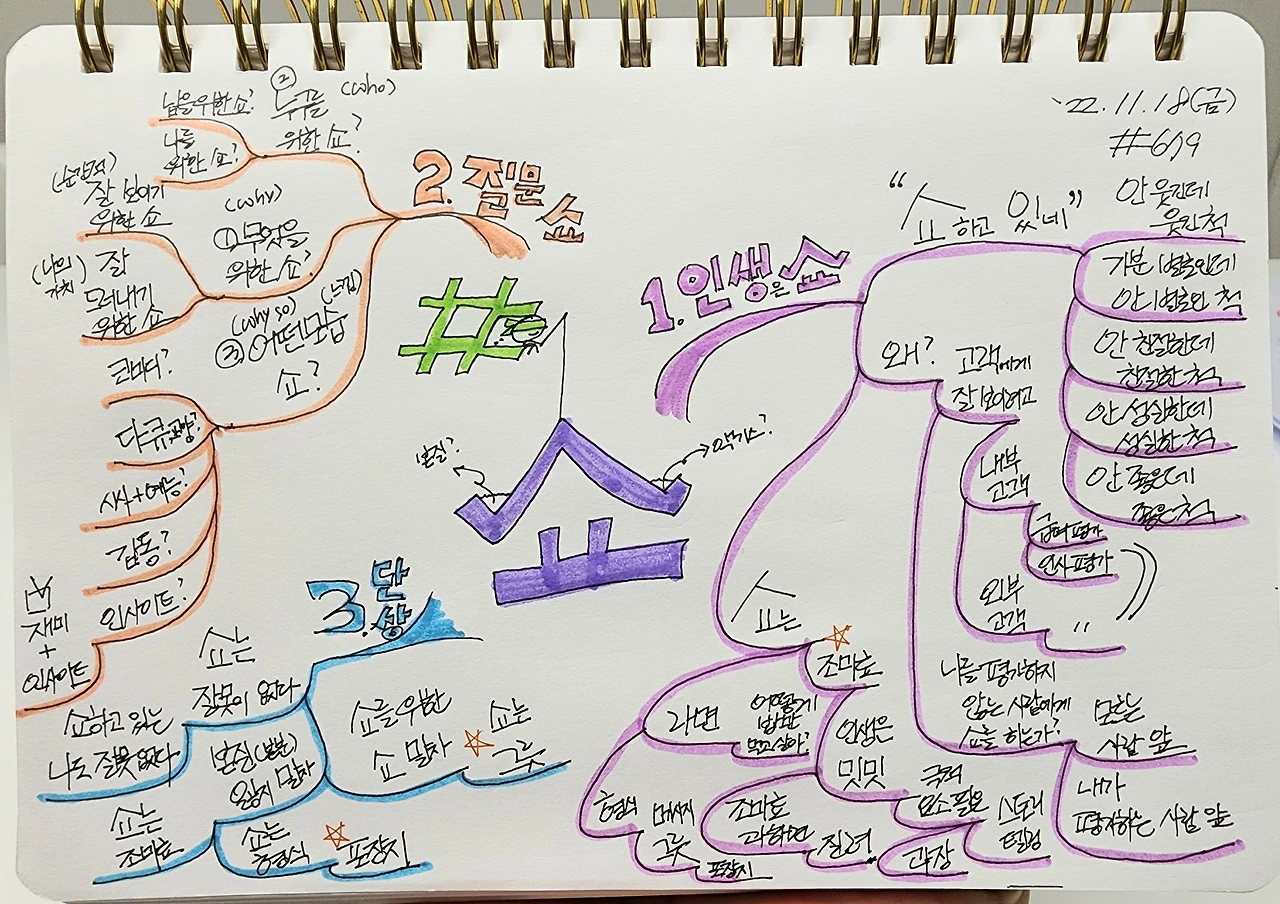 '22.11.18(금)
#619
#쇼
본질?
악기스?
1.인생은 쇼
"쇼하고 있네"
안 웃긴데
웃긴 척
기분 별로인데
안 별로인 척
안 친절한데
친절한 척
안 성실한데
성실한 척
안 좋은데
좋은 척
왜?
고객에게
잘 보이려고
내부
고객
급여 평가
인사 평가
외부
고객
〃
나를 평가하지
않는 사람에게
쇼를 하는가?
모르는
사람 앞
내가
평가하는 사람 앞
쇼는
조미료
라면
어떻게
맨밥만
먹고 살아?
형식
메시지
그릇
포장지
조미료
과하면
질려
인생은
밋밋
극적
요소 필요
스토리
텔링
과장
2.질문
쇼
② 누구를 (who)
위한 쇼?
남을 위한 쇼?
나를
위한 쇼?
(why)
① 무엇을
위한 쇼?
(순간적)
잘 보이기
위한 쇼
(나의 가치)
잘
드러내기
위한 쇼
(why so) (느낌)
③ 어떤 모습
쇼?
코미디?
다큐교양?
시사+예능?
감동?
인사이트?
재미
+
인사이트
3.단상
쇼는
잘못이 없다
쇼하고 있는
나도 잘못 없다
쇼를 위한
쇼 말자
쇼는
그릇
본질(본분)
잊지 말자
쇼는
조미료
쇼는
형식
포장지